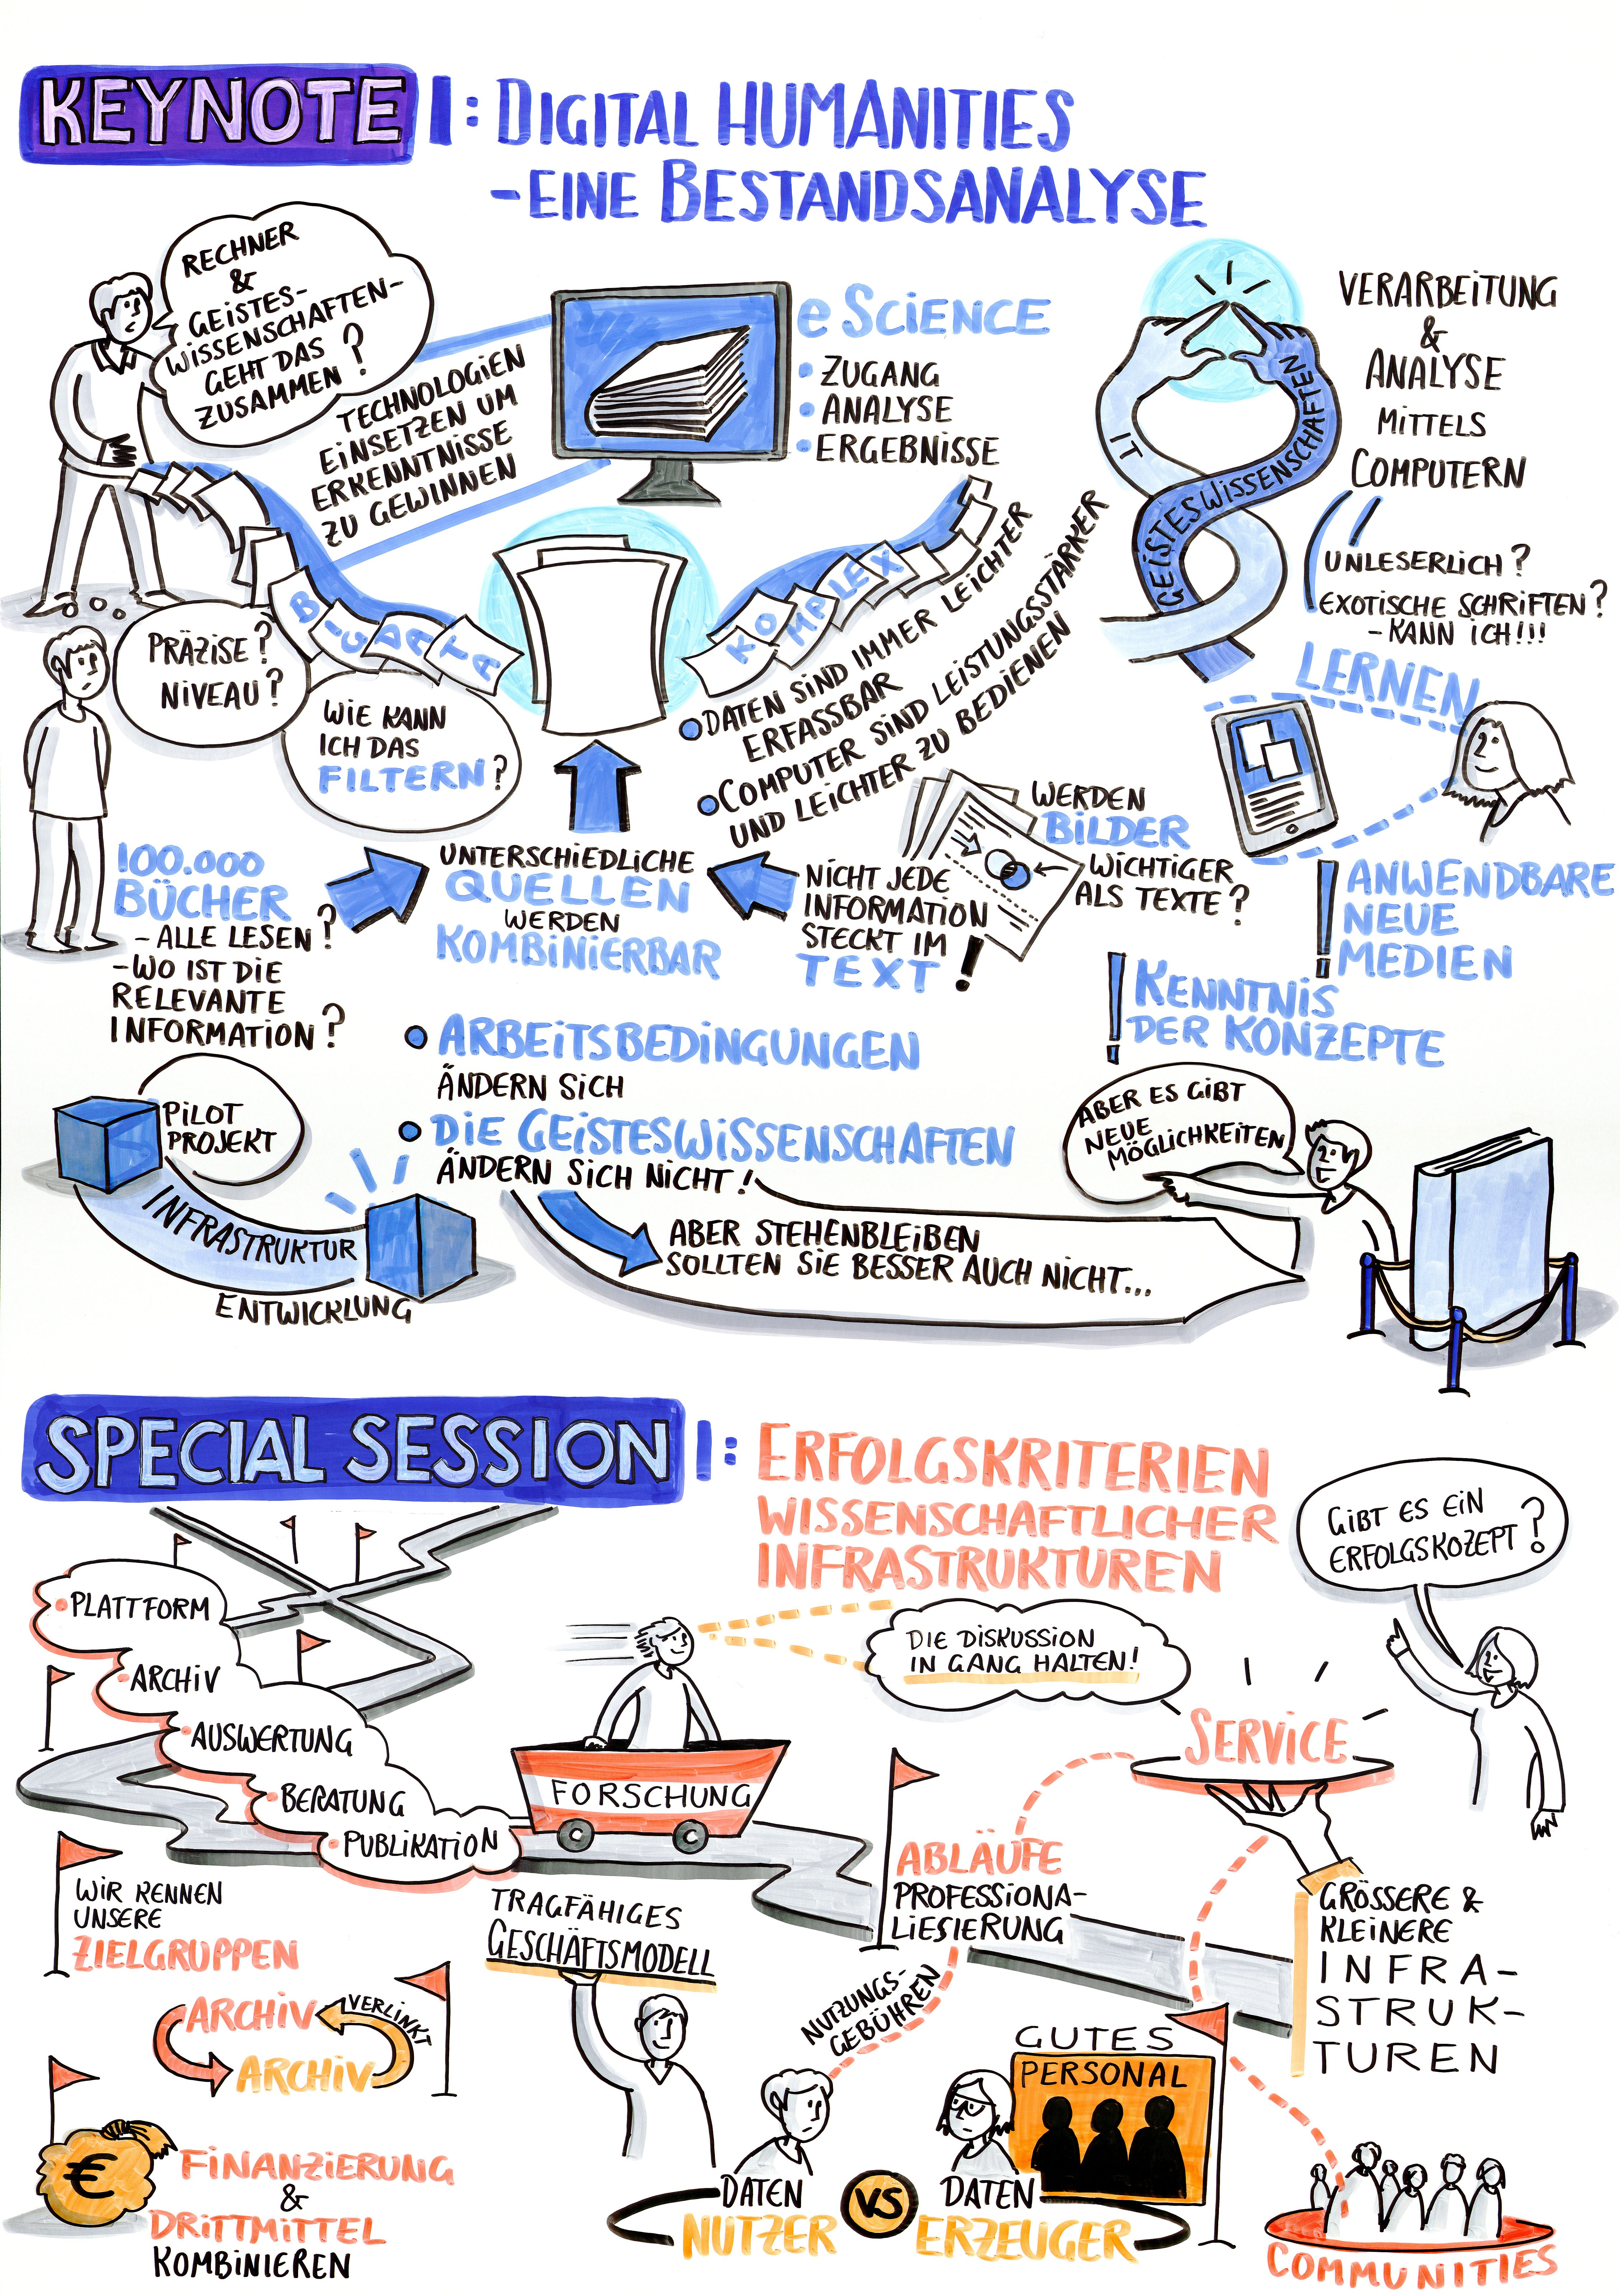 KEYNOTE I: DIGITAL HUMANITIES
- EINE BESTANDSANALYSE
RECHNER
&
GEISTES-
WISSENSCHAFTEN-
GEHT DAS
ZUSAMMEN?
TECHNOLOGIEN
EINSETZEN UM
ERKENNTNISSE
ZU GEWINNEN
e SCIENCE
• ZUGANG
• ANALYSE
• ERGEBNISSE
IT
GEISTESWISSENSCHAFTEN
VERARBEITUNG
&
ANALYSE
MITTELS
COMPUTERN
UNLESERLICH?
EXOTISCHE SCHRIFTEN?
- KANN ICH!!!
BIG DATA
KOMPLEX
PRÄZISE?
NIVEAU?
WIE KANN
ICH DAS
FILTERN?
DATEN SIND IMMER LEICHTER
ERFASSBAR
COMPUTER SIND LEISTUNGSSTÄRKER
UND LEICHTER ZU BEDIENEN
LERNEN
100.000
BÜCHER
- ALLE LESEN?
- WO IST DIE
RELEVANTE
INFORMATION?
UNTERSCHIEDLICHE
QUELLEN
WERDEN
KOMBINIERBAR
NICHT JEDE
INFORMATION
STECKT IM
TEXT!
WERDEN
BILDER
WICHTIGER
ALS TEXTE?
! ANWENDBARE
NEUE
MEDIEN
! KENNTNIS
DER KONZEPTE
• ARBEITSBEDINGUNGEN
ÄNDERN SICH
• DIE GEISTESWISSENSCHAFTEN
ÄNDERN SICH NICHT!
ABER STEHENBLEIBEN
SOLLTEN SIE BESSER AUCH NICHT...
PILOT
PROJEKT
INFRASTRUKTUR
ENTWICKLUNG
ABER ES GIBT
NEUE
MÖGLICHKEITEN
SPECIAL SESSION I: ERFOLGSKRITERIEN
WISSENSCHAFTLICHER
INFRASTRUKTUREN
GIBT ES EIN
ERFOLGSKOZEPT?
• PLATTFORM
• ARCHIV
• AUSWERTUNG
• BERATUNG
• PUBLIKATION
FORSCHUNG
DIE DISKUSSION
IN GANG HALTEN!
SERVICE
WIR KENNEN
UNSERE
ZIELGRUPPEN
TRAGFÄHIGES
GESCHÄFTSMODELL
ABLÄUFE
PROFESSIONA-
LIESIERUNG
GRÖSSERE &
KLEINERE
INFRA-
STRUK-
TUREN
ARCHIV
VERLINKT
ARCHIV
NUTZUNGS-
GEBÜHREN
GUTES
PERSONAL
€
FINANZIERUNG
&
DRITTMITTEL
KOMBINIEREN
DATEN
NUTZER
VS
DATEN
ERZEUGER
COMMUNITIES